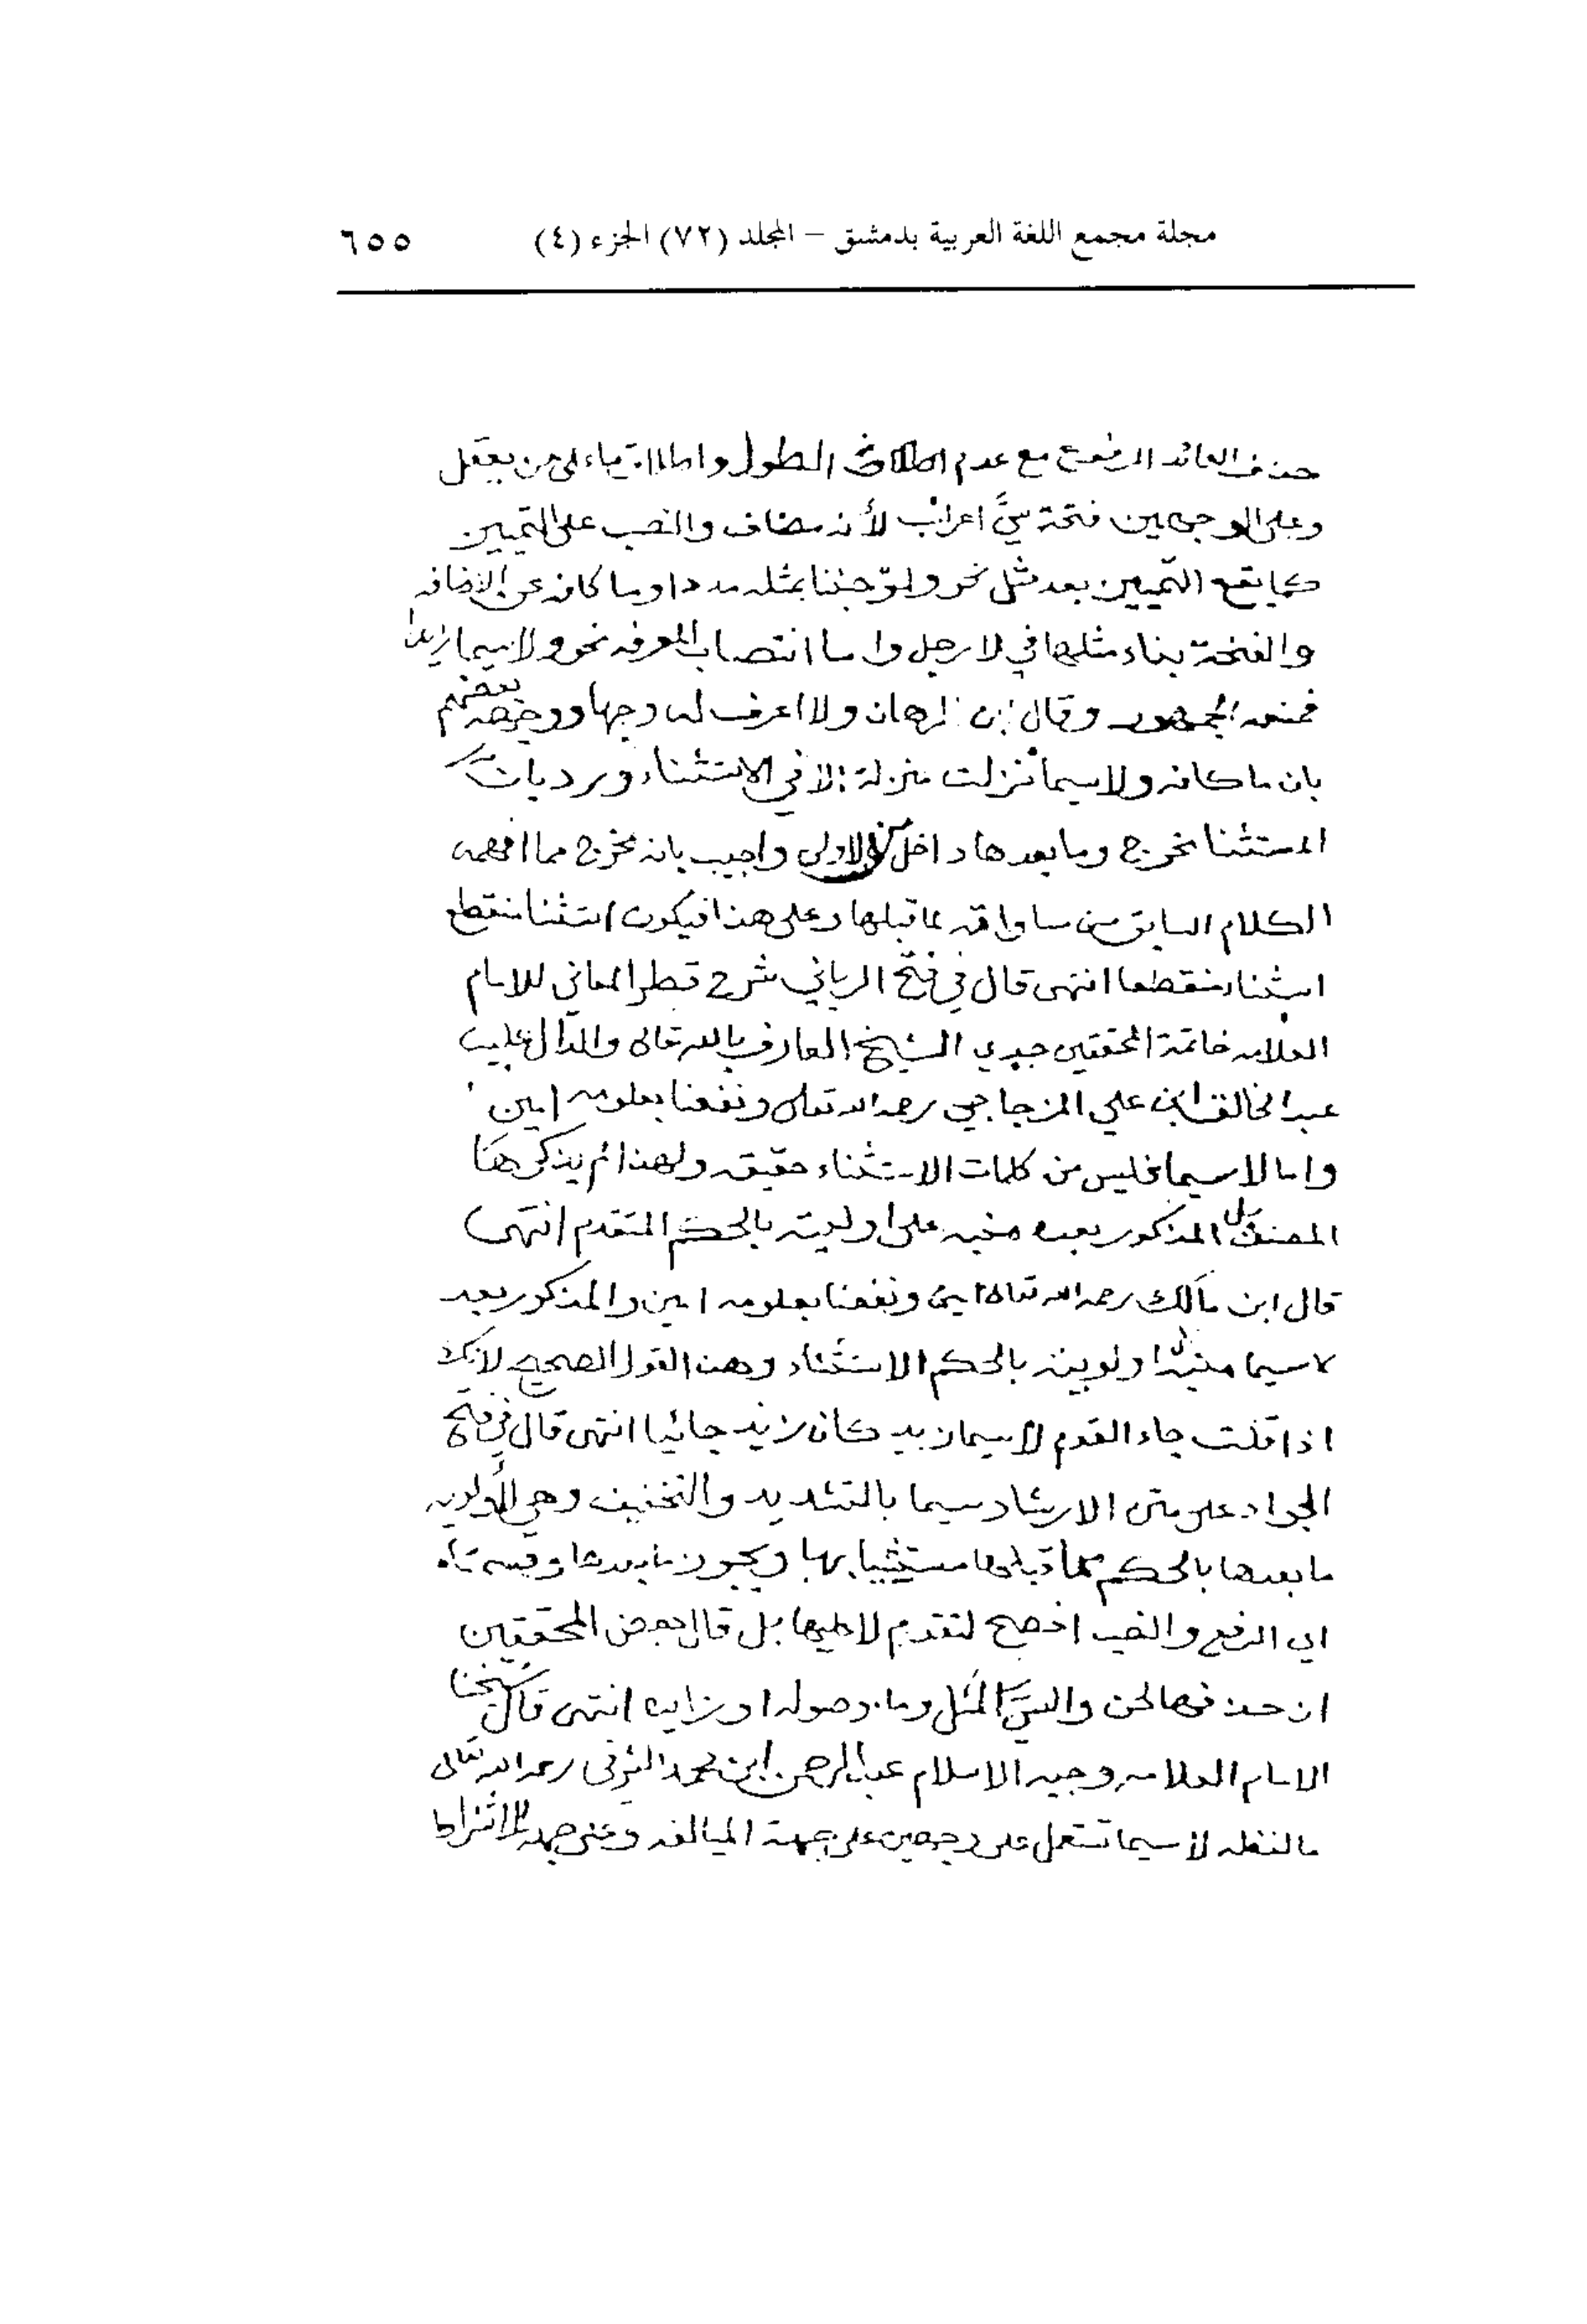 مجلة مجمع اللغة العربية بدمشق – المجلد (٧٢) الجزء (٤) ٦٥٥
حذف العائد المرفوع مع عدم الطول واطلاق ما على من يعقل
وعلى الوجهين فتحة سيَّ اعراب لأنه مضاف والنصب على التمييز
كما يقع التمييز بعد مثل نحو ولو جئنا بمثله مددا وما كافه عن الاضافه
والفتحة بناء مثلها في لا رجل واما انتصاب المعرفه نحو ولا سيما زيدا
فمنعه الجمهور وقال ابن الدهان ولا اعرف له وجها ووجهه بعضهم
بان ما كافه ولا سيما نزلت منزلة إلا في الاستثناء ورد بان
المستثنا مخرج وما بعدها داخل من الاولى واجيب بانه مخرج مما افهمه
الكلام السابق من مساواته لما قبلها وعلى هذا فيكون استثنا منقطع
استثناء منقطعا انتهى قال في فتح الرباني شرح قطر المعاني للامام
العلامه خاتمة المحققين جدي الشيخ العارف بالله تعالى والدال عليه
عبد الخالق ابن علي المزجاجي رحمه الله تعالى ونفعنا بعلومه امين
واما لا سيما فليس من كلمات الاستثناء حقيقه ولهذا لم يذكر هنا
المصنف بل المذكور بعده منبه على اولويته بالحكم المتقدم انتهى
قال ابن مالك رحمه الله تعالى امين ونفعنا بعلومه امين والمذكور بعد
لا سيما منبه على اولويته بالحكم الاستثناء وهذا القول الصحيح لانك
اذا قلت جاء القوم لا سيما زيد كان زيد جائيا انتهى قال في فتح
الجواد على متن الارشاد سيما بالتشديد والتخفيف وهي لأولويه
ما بعدها بالحكم مما قبلها مستثنيا بها ويجوز ما بعدها وقسيمتاه
اي الرفع والنصب افصح لتقدم لا عليها بل قال بعض المحققين
ان حذفها لحن والسيّ المثل وما موصوله او زايده انتهى قال شيخنا
الامام العلامه وجيه الاسلام عبد الرحمن ابن محمد الشرفي رحمه الله تعالى
ما لفظه لا سيما تستعمل على وجهين على جهة المبالغه وعلى جهة الاشتراط